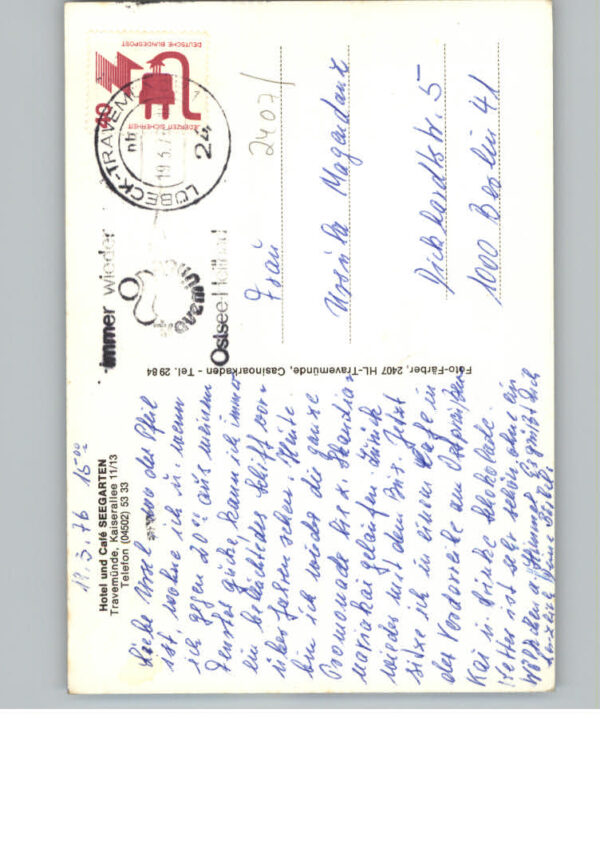 19.3.76 15⁰⁰
Hotel und Café SEEGARTEN
Travemünde, Kaiserallee 11/13
Telefon (04502) 53 33
Liebe Ursel, wo der Pfeil
ist, wohne ich u. wenn
ich gegen 20⁰⁰ aus meinem
Fenster gucke, kann ich immer
ein beleuchtetes Schiff vor-
überfahren sehen. Heute
bin ich wieder die ganze
Promenade bis z. Skandina-
vienkai gelaufen. Zurück
wieder mit dem Bus. Jetzt
sitze ich in einem Cafe in
der Vorderreihe am Ostpreußen
Kai u. trinke Schokolade.
Wetter ist sehr schön, ohne ein
Wölkchen am Himmel. Es grüßt Dich
herzlich Deine
Foto-Färber, 2407 HL-Travemünde, Casinoarkaden - Tel. 2984
immer wieder
Travemünde
Ostsee-Heilbad
LÜBECK-TRAVEM
24
19.3.7
DEUTSCHE BUNDESPOST
JEDERZEIT SICHERHEIT
40
2407/
Frau
Ursula Magdanz
Dickhardtstr. 5
1000 Berlin 41